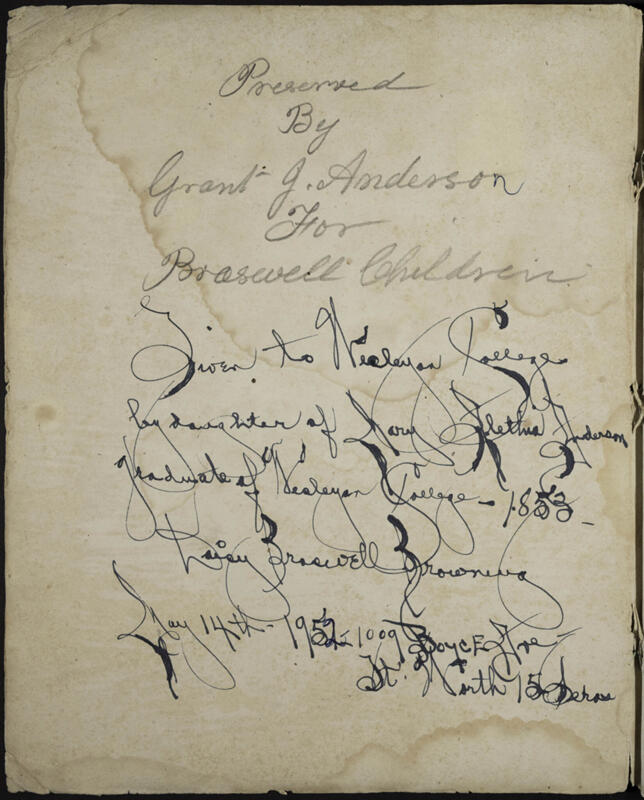 Preserved
By
Grant J. Anderson
For
Braswell Children
Given to Wesleyan College
by daughter of Mary Aletha Anderson
Graduate of Wesleyan College - 1853 -
Daisy Braswell Browning
May 14th - 1952 - 1009 Boyce Ave -
Ft. Worth 15 Texas